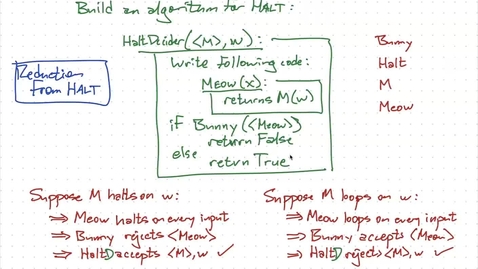 Build an algorithm for HALT:
HaltDecider(⟨M⟩, w):
Write following code:
Meow(x):
returns M(w)
if Bunny(⟨Meow⟩)
return False
else
return True
Reduction
from HALT
Bunny
Halt
M
Meow
Suppose M halts on w:
⇒ Meow halts on every input
⇒ Bunny rejects ⟨Meow⟩
⇒ HaltD accepts ⟨M⟩, w ✓
Suppose M loops on w:
⇒ Meow loops on every input
⇒ Bunny accepts ⟨Meow⟩
⇒ HaltD rejects ⟨M⟩, w ✓